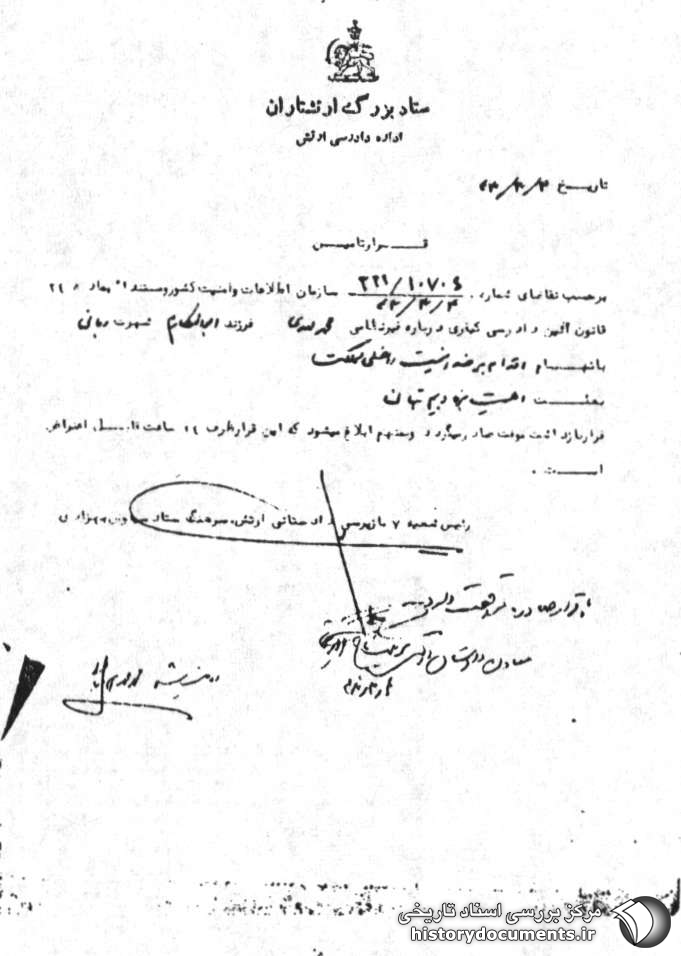 ستاد بزرگ ارتشتاران
اداره دادرسی ارتش
تاریخ
قرار تامین
برحسب تقاضای شماره ۳۲۱/۱۰۷۰۶ سازمان اطلاعات وامنیت کشور ومستندا
قانون آئین دادرسی کیفری درباره غیرنظامی محمد مهدی فرزند ابوالمکارم شهرت ربانی
باتهام اقدام برضد امنیت داخلی مملکت
بعلت اهمیت بزه و بیم تبانی
قرار بازداشت موقت صادر میگردد وبمتهم ابلاغ میشود که این قرار ظرف ۲۴ ساعت قابل اعتراض
است .
رئیس شعبه ۷ بازپرسی دادستانی ارتش. سرهنگ ستاد
با قرار صادره موافقت دارد
معاون دادستان ارتش
مرکز بررسی اسناد تاریخی
historydocuments.ir